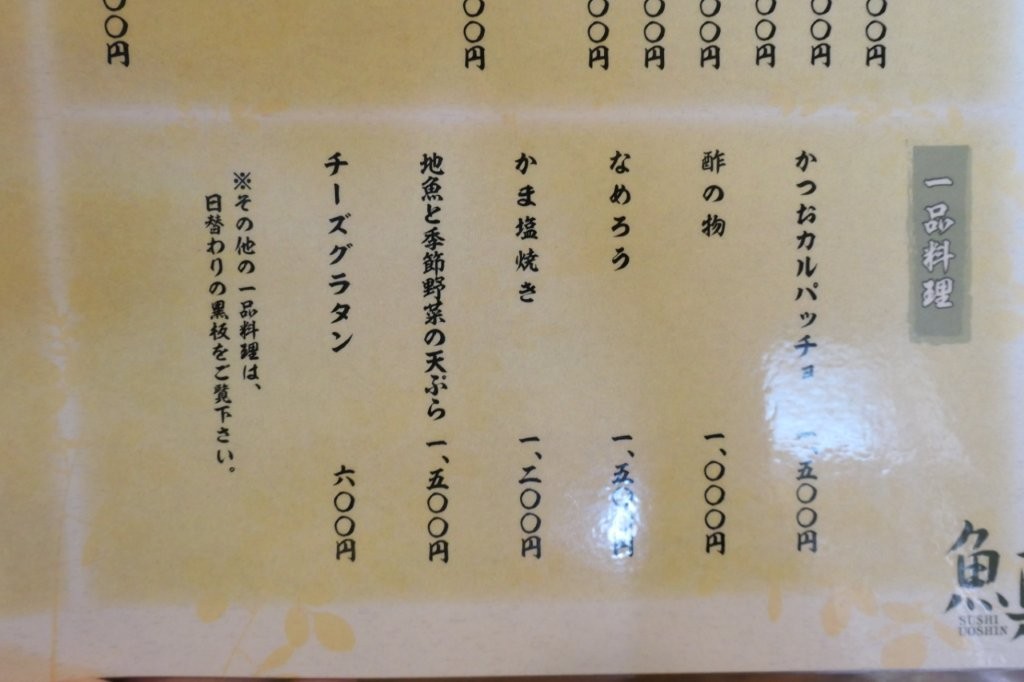 〇〇円
〇〇円
〇〇円
〇〇円
〇〇円
〇〇円
〇〇円
〇〇円
一品料理
かつおカルパッチョ 一、五〇〇円
酢の物 一、〇〇〇円
なめろう 一、五〇〇円
かま塩焼き 一、二〇〇円
地魚と季節野菜の天ぷら 一、五〇〇円
チーズグラタン 六〇〇円
※その他の一品料理は、
日替わりの黒板をご覧下さい。
魚
SUSHI
UOSHIN